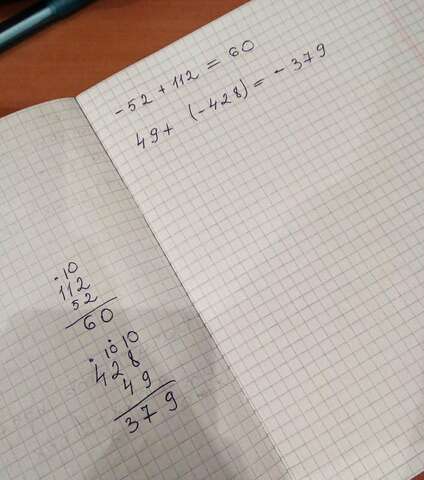 -52 + 112 = 60
49 + (-428) = -379
.10
112
52
60
. .10 10
428
49
379